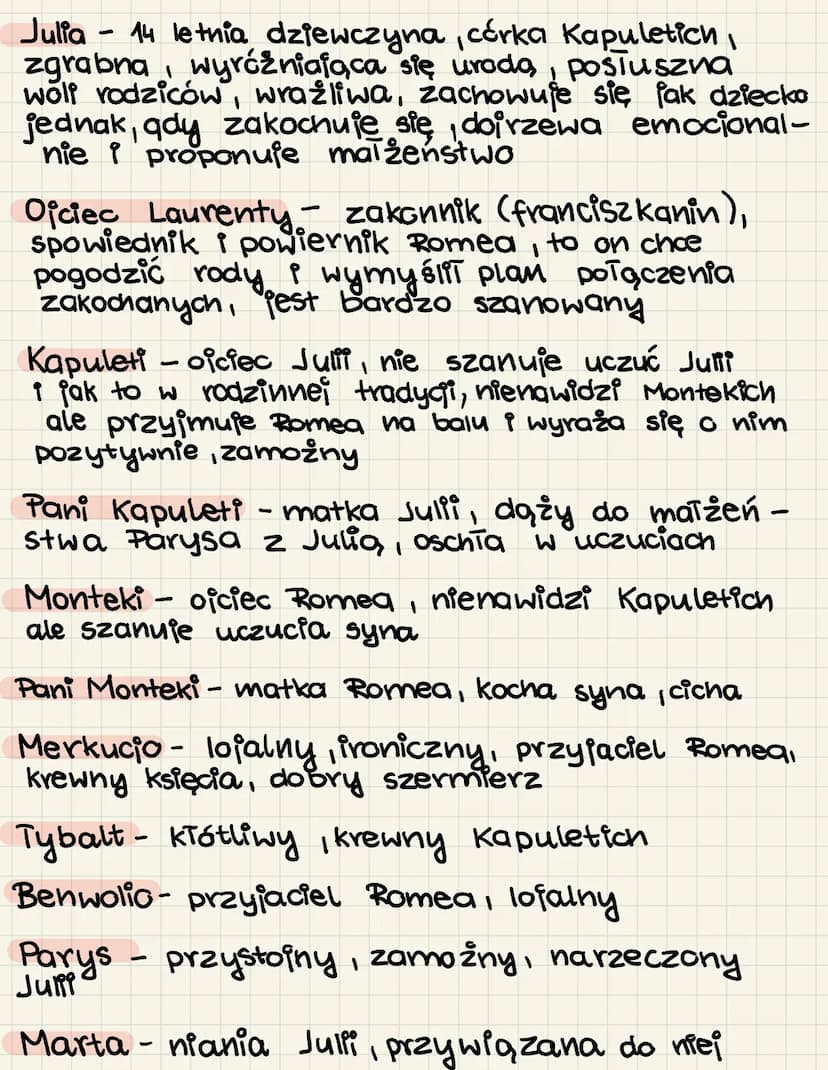 Julia - 14 letnia dziewczyna, córka Kapuletich,
zgrabna, wyróżniająca się urodą, posłuszna
woli rodziców, wrażliwa, zachowuje się jak dziecko
jednak, gdy zakochuje się, dojrzewa emocjonal-
nie i proponuje małżeństwo
Ojciec Laurenty - zakonnik (franciszkanin),
spowiednik i powiernik Romea, to on chce
pogodzić rody i wymyślił plan połączenia
zakochanych, jest bardzo szanowany
Kapuleti - ojciec Julii, nie szanuje uczuć Julii
i jak to w rodzinnej tradycji, nienawidzi Montekich
ale przyjmuje Romea na balu i wyraża się o nim
pozytywnie, zamożny
Pani Kapuleti - matka Julii, dąży do małżeń-
stwa Parysa z Julią, oschła w uczuciach
Monteki - ojciec Romea, nienawidzi Kapuletich
ale szanuje uczucia syna
Pani Monteki - matka Romea, kocha syna, cicha
Merkucjo - lojalny, ironiczny, przyjaciel Romea,
krewny księcia, dobry szermierz
Tybalt - kłótliwy, krewny Kapuletich
Benwolio - przyjaciel Romea, lojalny
Parys - przystojny, zamożny, narzeczony
Julii
Marta - niania Julii, przywiązana do niej